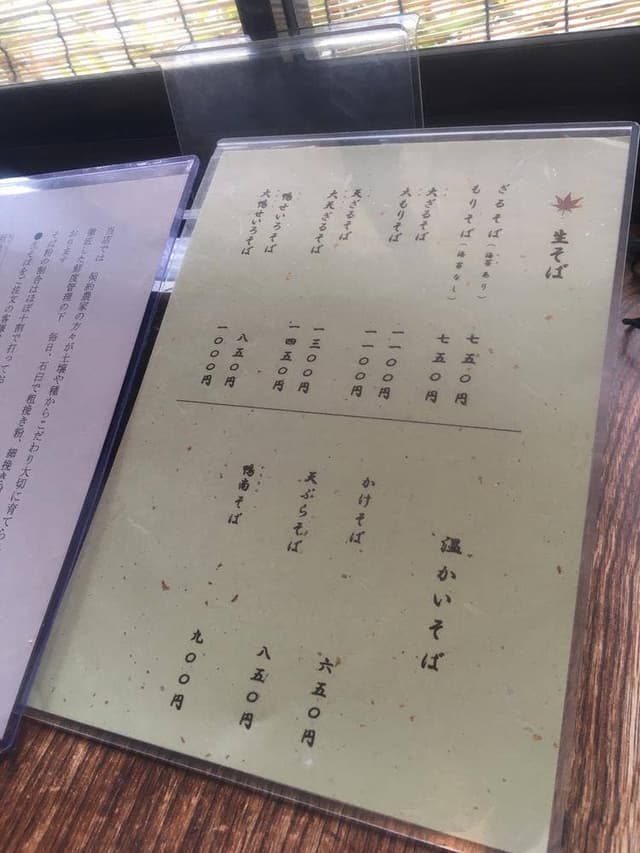 生そば
ざるそば(海苔あり) 七五〇円
もりそば(海苔なし) 七五〇円
大ざるそば 一一〇〇円
大もりそば 一一〇〇円
天ざるそば 一三〇〇円
大天ざるそば 一四五〇円
鴨せいろそば 八五〇円
大鴨せいろそば 一〇〇〇円
温かいそば
かけそば 六五〇円
天ぷらそば 八五〇円
鴨南そば 九〇〇円
当店では、契約農家の方々が土壌や種からこだわり大切に育てら
徹底した鮮度管理の下、毎日、石臼で粗挽き粉、細挽き
おります
そば粉の割合はほぼ十割で打ってお
●生そばをご注文の客様